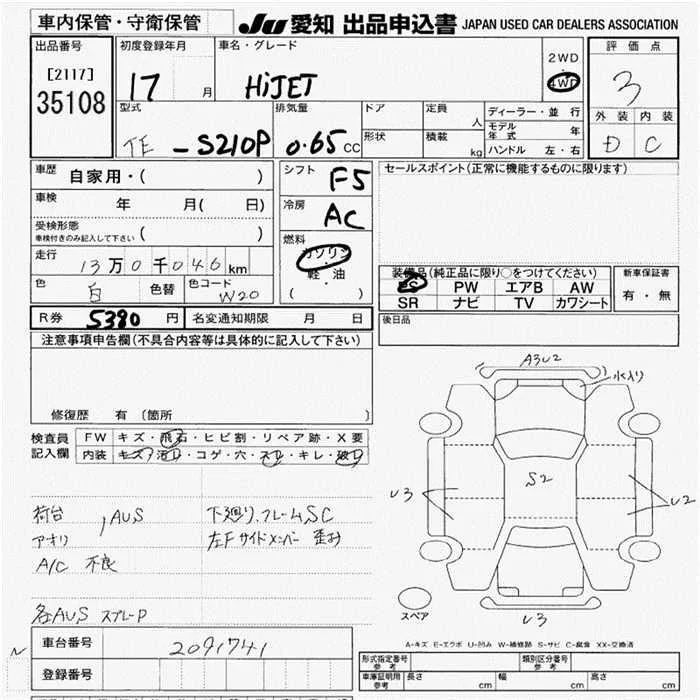 車内保管・守衛保管
JU 愛知 出品申込書 JAPAN USED CAR DEALERS ASSOCIATION
出品番号
[2117]
35108
初度登録年月
17 月
車名・グレード
HiJET
2WD
・
4WD
評価点
3
外装 内装
D C
型式
TE -S210P
排気量
0.65 cc
ドア
形状
定員
人
積載
kg
ディーラー・並行
モデル年式 年
ハンドル 左・右
車歴
自家用・( )
車検
年 月( 日)
受検形態
車検付きのみ記入して下さい ( )
走行
13万0千046km
色
白 色替
色コード
W20
シフト
F5
冷房
AC
燃料
ガソリン
・
軽・油
( )
セールスポイント(正常に機能するものに限ります)
装備品(純正品に限り○をつけてください)
PS PW エアB AW
SR ナビ TV カワシート
新車保証書
有・無
R券 5380 円 名変通知期限 月 日
後日品
注意事項申告欄(不具合内容等は具体的に記入して下さい)
修復歴 有 〔箇所
検査員
記入欄
FW キズ・飛石・ヒビ割・リペア跡・X要
内装 キズ・汚レ・コゲ・穴・スレ・キレ・破レ
荷台 , AUS
アオリ
A/C 不良
下廻り、フレームSC
左Fサイドメンバー 歪み
各AUS スプレーP
A3U2
水入り
S2
U3
U2
U3
スペア
A-キズ E-エクボ U-凹み W-補修跡 S-サビ C-腐食 XX-交換済
車台番号
2091741
登録番号
N
形式指定番号
参考
類別区分番号
参考
車庫証明用
参考
長さ cm 幅 cm 高さ cm